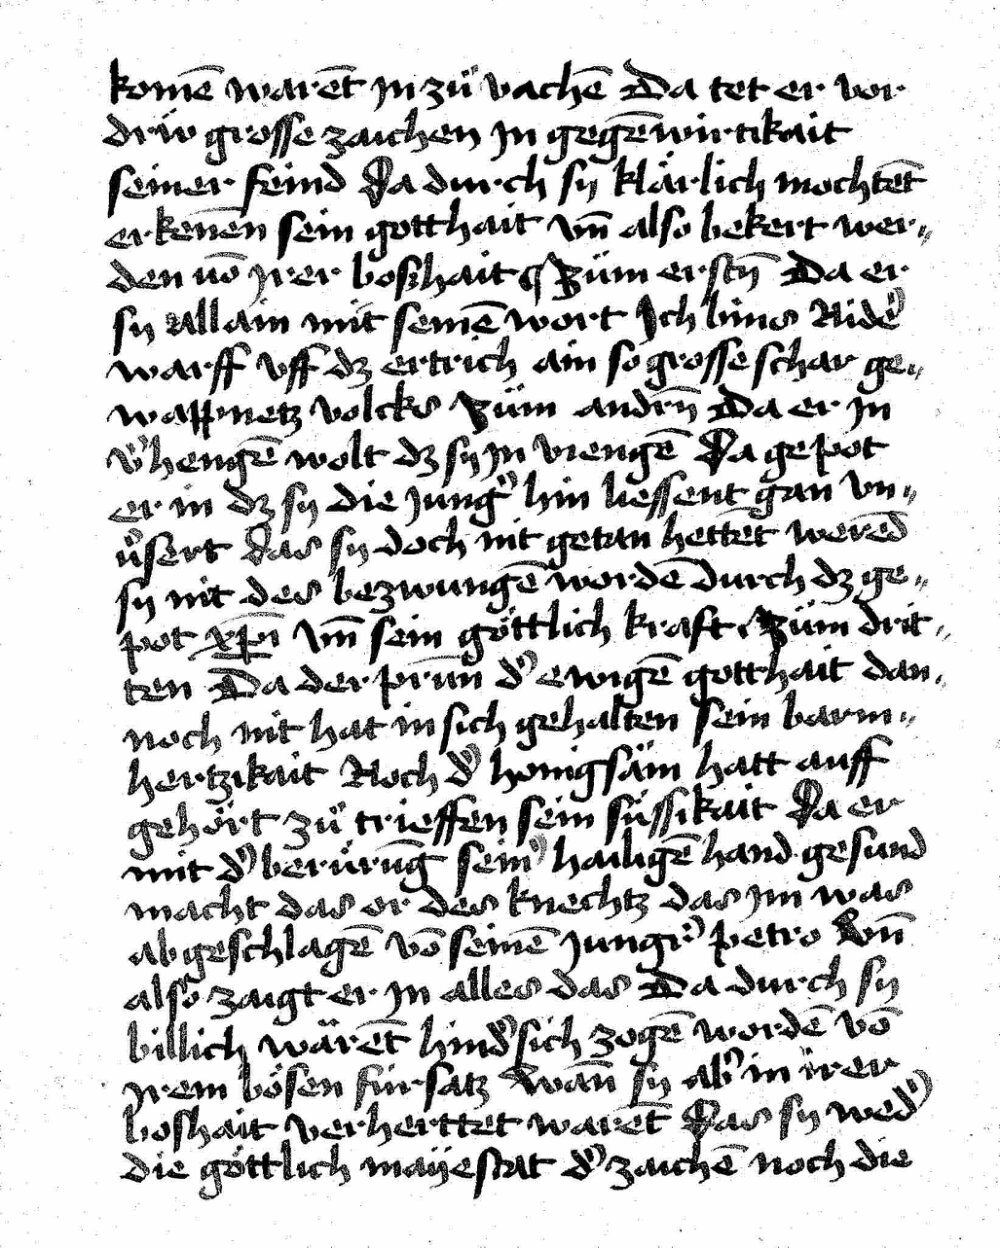 komē warēt jn zů vachē Da tet er vor
driv grosse zaichen jn gegēwirtikait
seiner feind Da durch sy klärlich mochtēt
erkenēn sein gotthait vn̄ also bekert wer„
den uō jrer boßhait Züm erstn̄ Da er
sy allain mit seinē wort Ich bins Nidʼ
warff vff dz ertrich ain so grosse schar ge„
wappnetz volcks Züm andrn̄ Da er jn
vʼhengē wolt dz sy jn viengē Da gepot
er in dz sy die jungʼ hin liessent gan vn„
ůsert Das sy doch nit getan hettēt werēd
sy nit des bezwungē wordē durch dz ge„
pot xp̄i vn̄ sein göttlich kraft Züm drit„
ten Da der prūn dʼ ewigē gotthait dan„
noch nit hat in sich gehalten sein barm„
hertzikait Noch dʼ honigsäm hatt auff
gehört zů trieffen sein süssikait Da er
mit dʼ berürūg seinʼ hailigē hand gesund
macht das or des knechtz das jm was
abgeschlagē vō seinē jungʼ petro Vn̄
also zaigt er jn alles das Da durch sy
billich wärēt hindʼ sich zogē wordē vō
jrem bösen fürsatz Wān sy abʼ in irer
boshait verherttet warēt Das sy wedʼ
die göttlich mayestat dʼ zaichē noch die